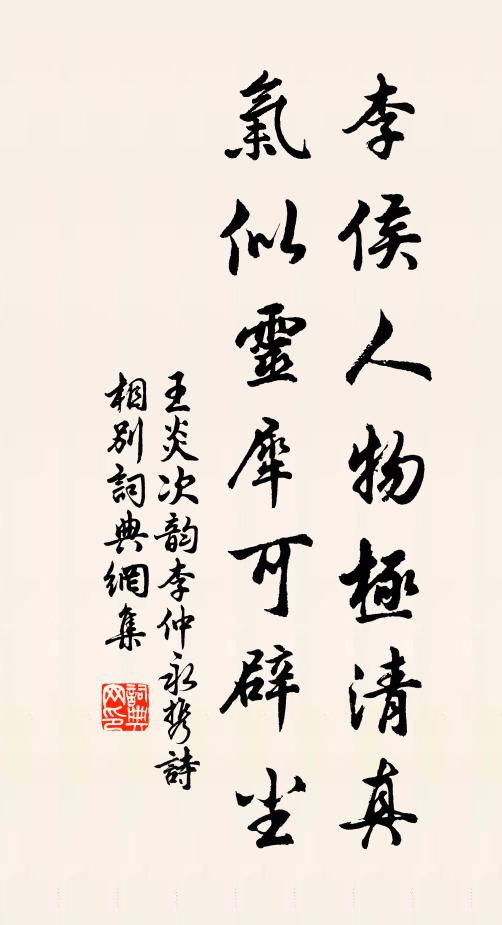 李侯人物極清真
氣似靈犀可辟尘
王炎次韵李仲永携詩
相别詞典網集
詞典
网印